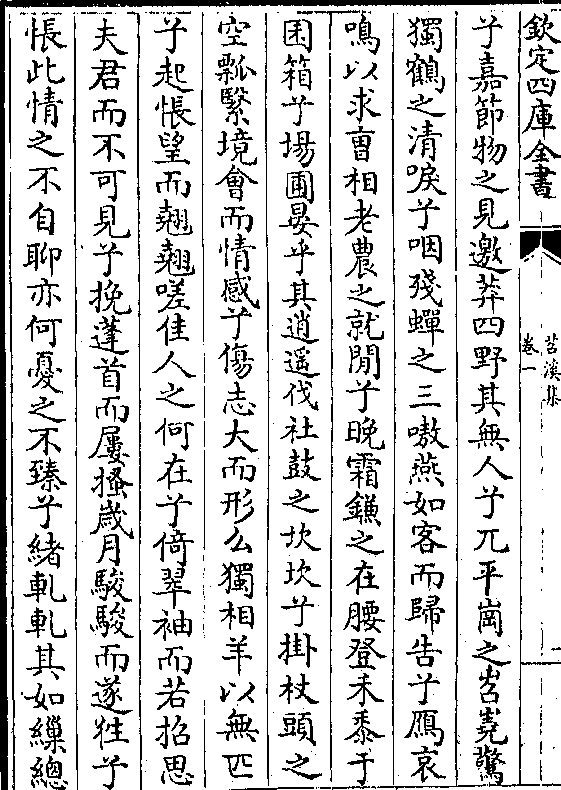 欽定四庫全書
苕溪集
卷一
兮嘉節物之見邀莽四野其無人兮兀平崗之岧嶤驚
獨鶴之清唳兮咽殘蟬之三嗷燕如客而歸告兮鴈哀
鳴以求曹相老農之就閒兮晚霜鎌之在腰登禾黍于
囷箱兮場圃晏乎其逍遥伐社鼓之坎坎兮掛杖頭之
空瓢繄境會而情感兮傷志大而形么獨相羊以無匹
兮起悵望而翹翹嗟佳人之何在兮倚翠袖而若招思
夫君而不可見兮挽蓬首而屢搔歲月駿駿而遂徃兮
悵此情之不自聊亦何憂之不臻兮緒軋軋其如繅總